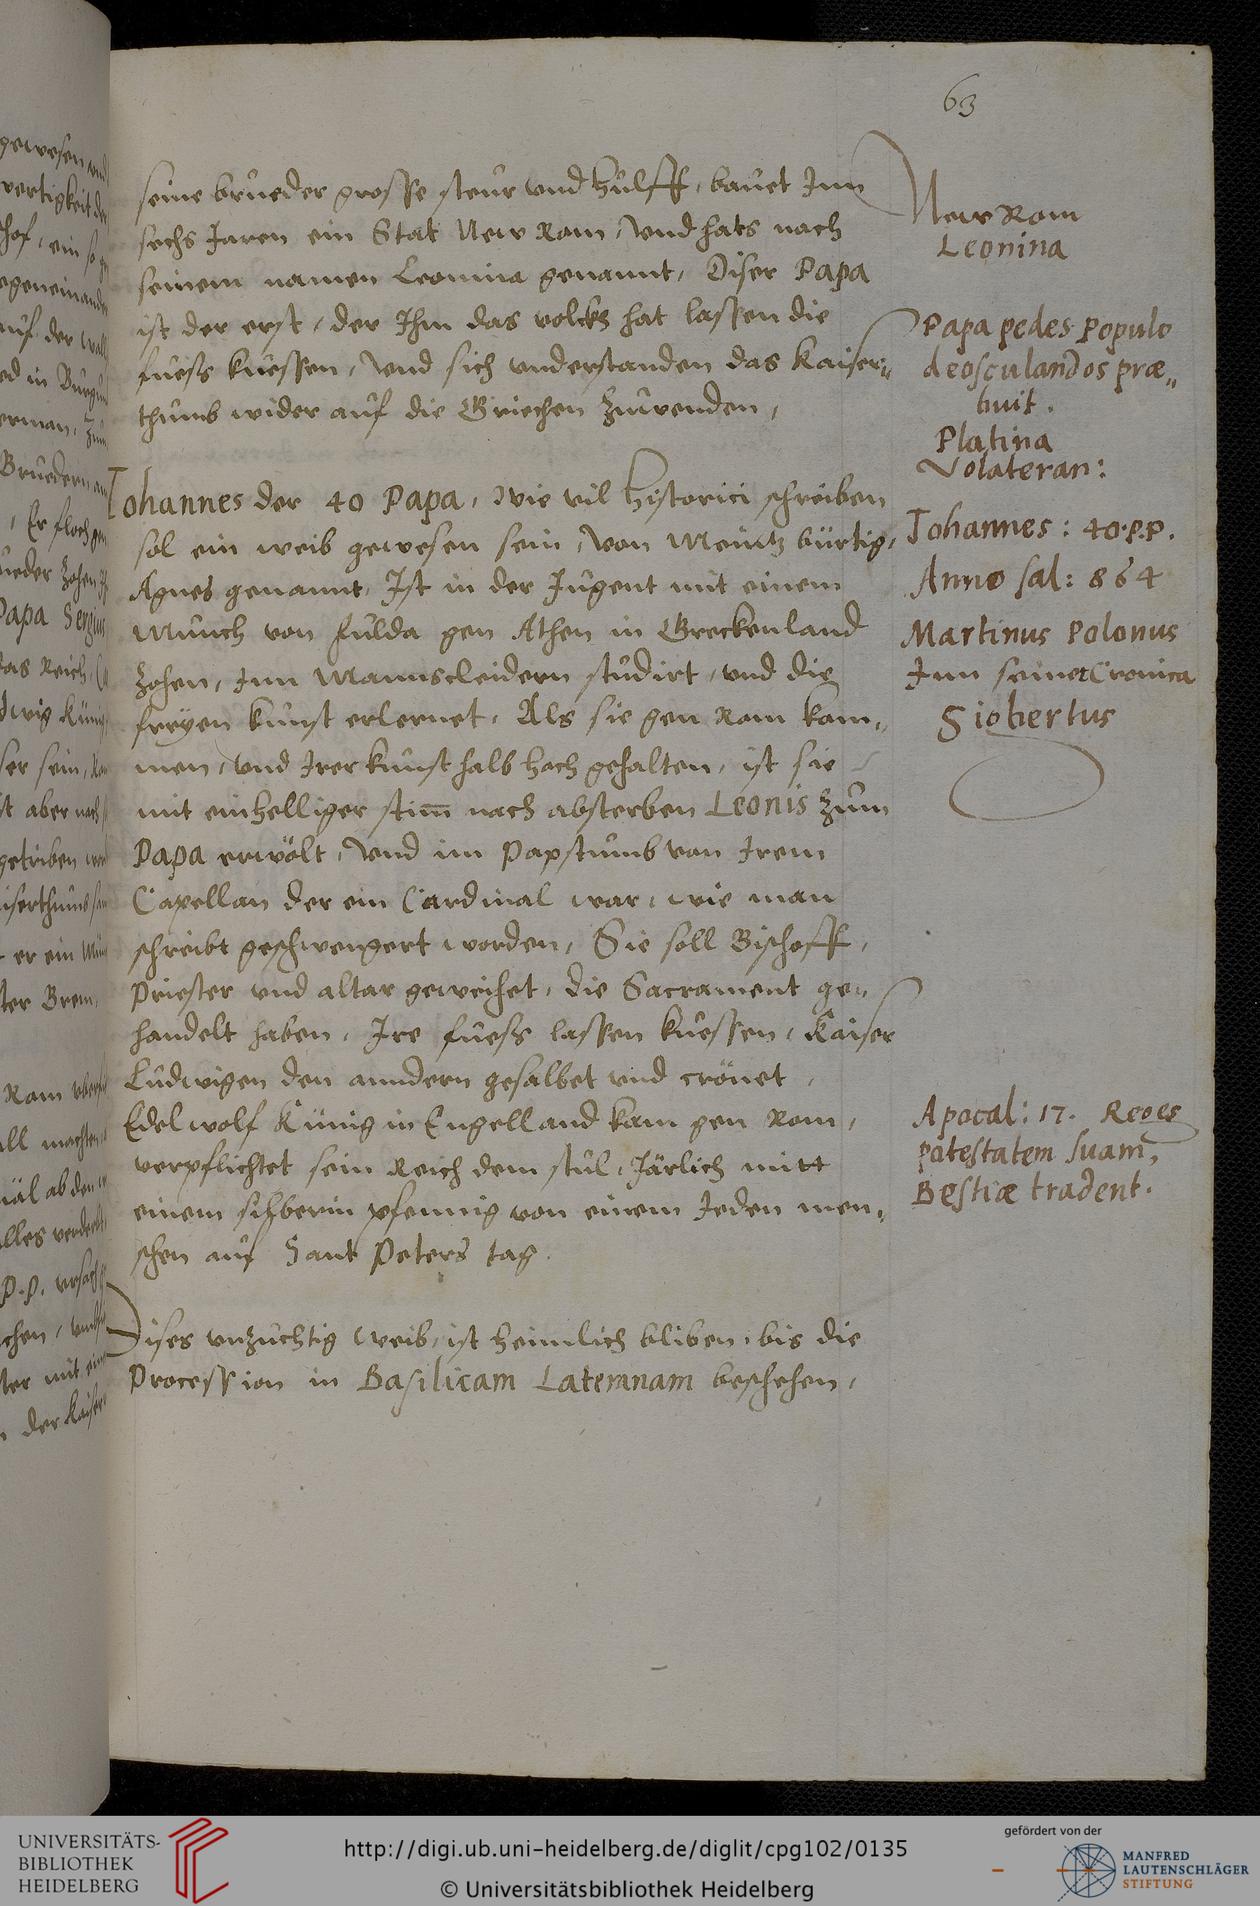 63
seine brueder grosse steur vnd hulff, bauet Inn
sechs Jaren ein Stat New Rom, Vnd hats nach
seinem namen Leonina genannt, Diser Papa
ist der erst, der Ihm das volckh hat lassen die
fuess kuessen, Vnd sich vnderstanden das Kaiser„
thumb wider auf die Griechen zuwenden,
New Rom
Leonina
Papa pedes Populo
deosculandos præ„
buit.
Platina
Volateran:
Johannes der 40 Papa, Wie vil historici schreiben
sol ein weib gewesen sein, Von Meintz bürtig,
Agnes genannt, Ist in der Jugent mit einem
Munch von Fulda gen Athen in Greckenland
zohen, Inn Mannscleidern studirt, vnd die
freyen kunst erlernet, Als sie gen Rom kom„
men, vnd Irer kunst halb hoch gehalten, ist sie
mit einhelliger stim̄ nach absterben Leonis zum
Papa erwölt, Vnd im Papstumb von Irem
Capellan der ein Cardinal war, wie man
schreibt geschwengert worden, Sie soll Bischoff,
Priester vnd altar geweihet, die Sacrament ge„
handelt haben, Ire fuess lassen kuessen, Kaiser
Ludwigen den anndern gesalbet vnd crönet,
Edelwolf Künig in Engelland kam gen Rom,
verpflichtet sein Reich dem stul, Järlich mitt
einem silberin pfennig von einem Jeden men„
schen auf Sant Peters tag.
Johannes: 40.P.P.
Anno sal: 864
Martinus Polonus
Inn seiner Cronica
Sigbertus
Apocal: 17. Reges
potestatem suam,
Bestiæ tradent.
Dises vnzuchtig weib, ist heimlich bliben, bis die
Procession in Basilicam Lateranam beschehen,
UNIVERSITÄTS-
BIBLIOTHEK
HEIDELBERG
http://digi.ub.uni-heidelberg.de/diglit/cpg102/0135
© Universitätsbibliothek Heidelberg
gefördert von der
MANFRED
LAUTENSCHLÄGER
STIFTUNG